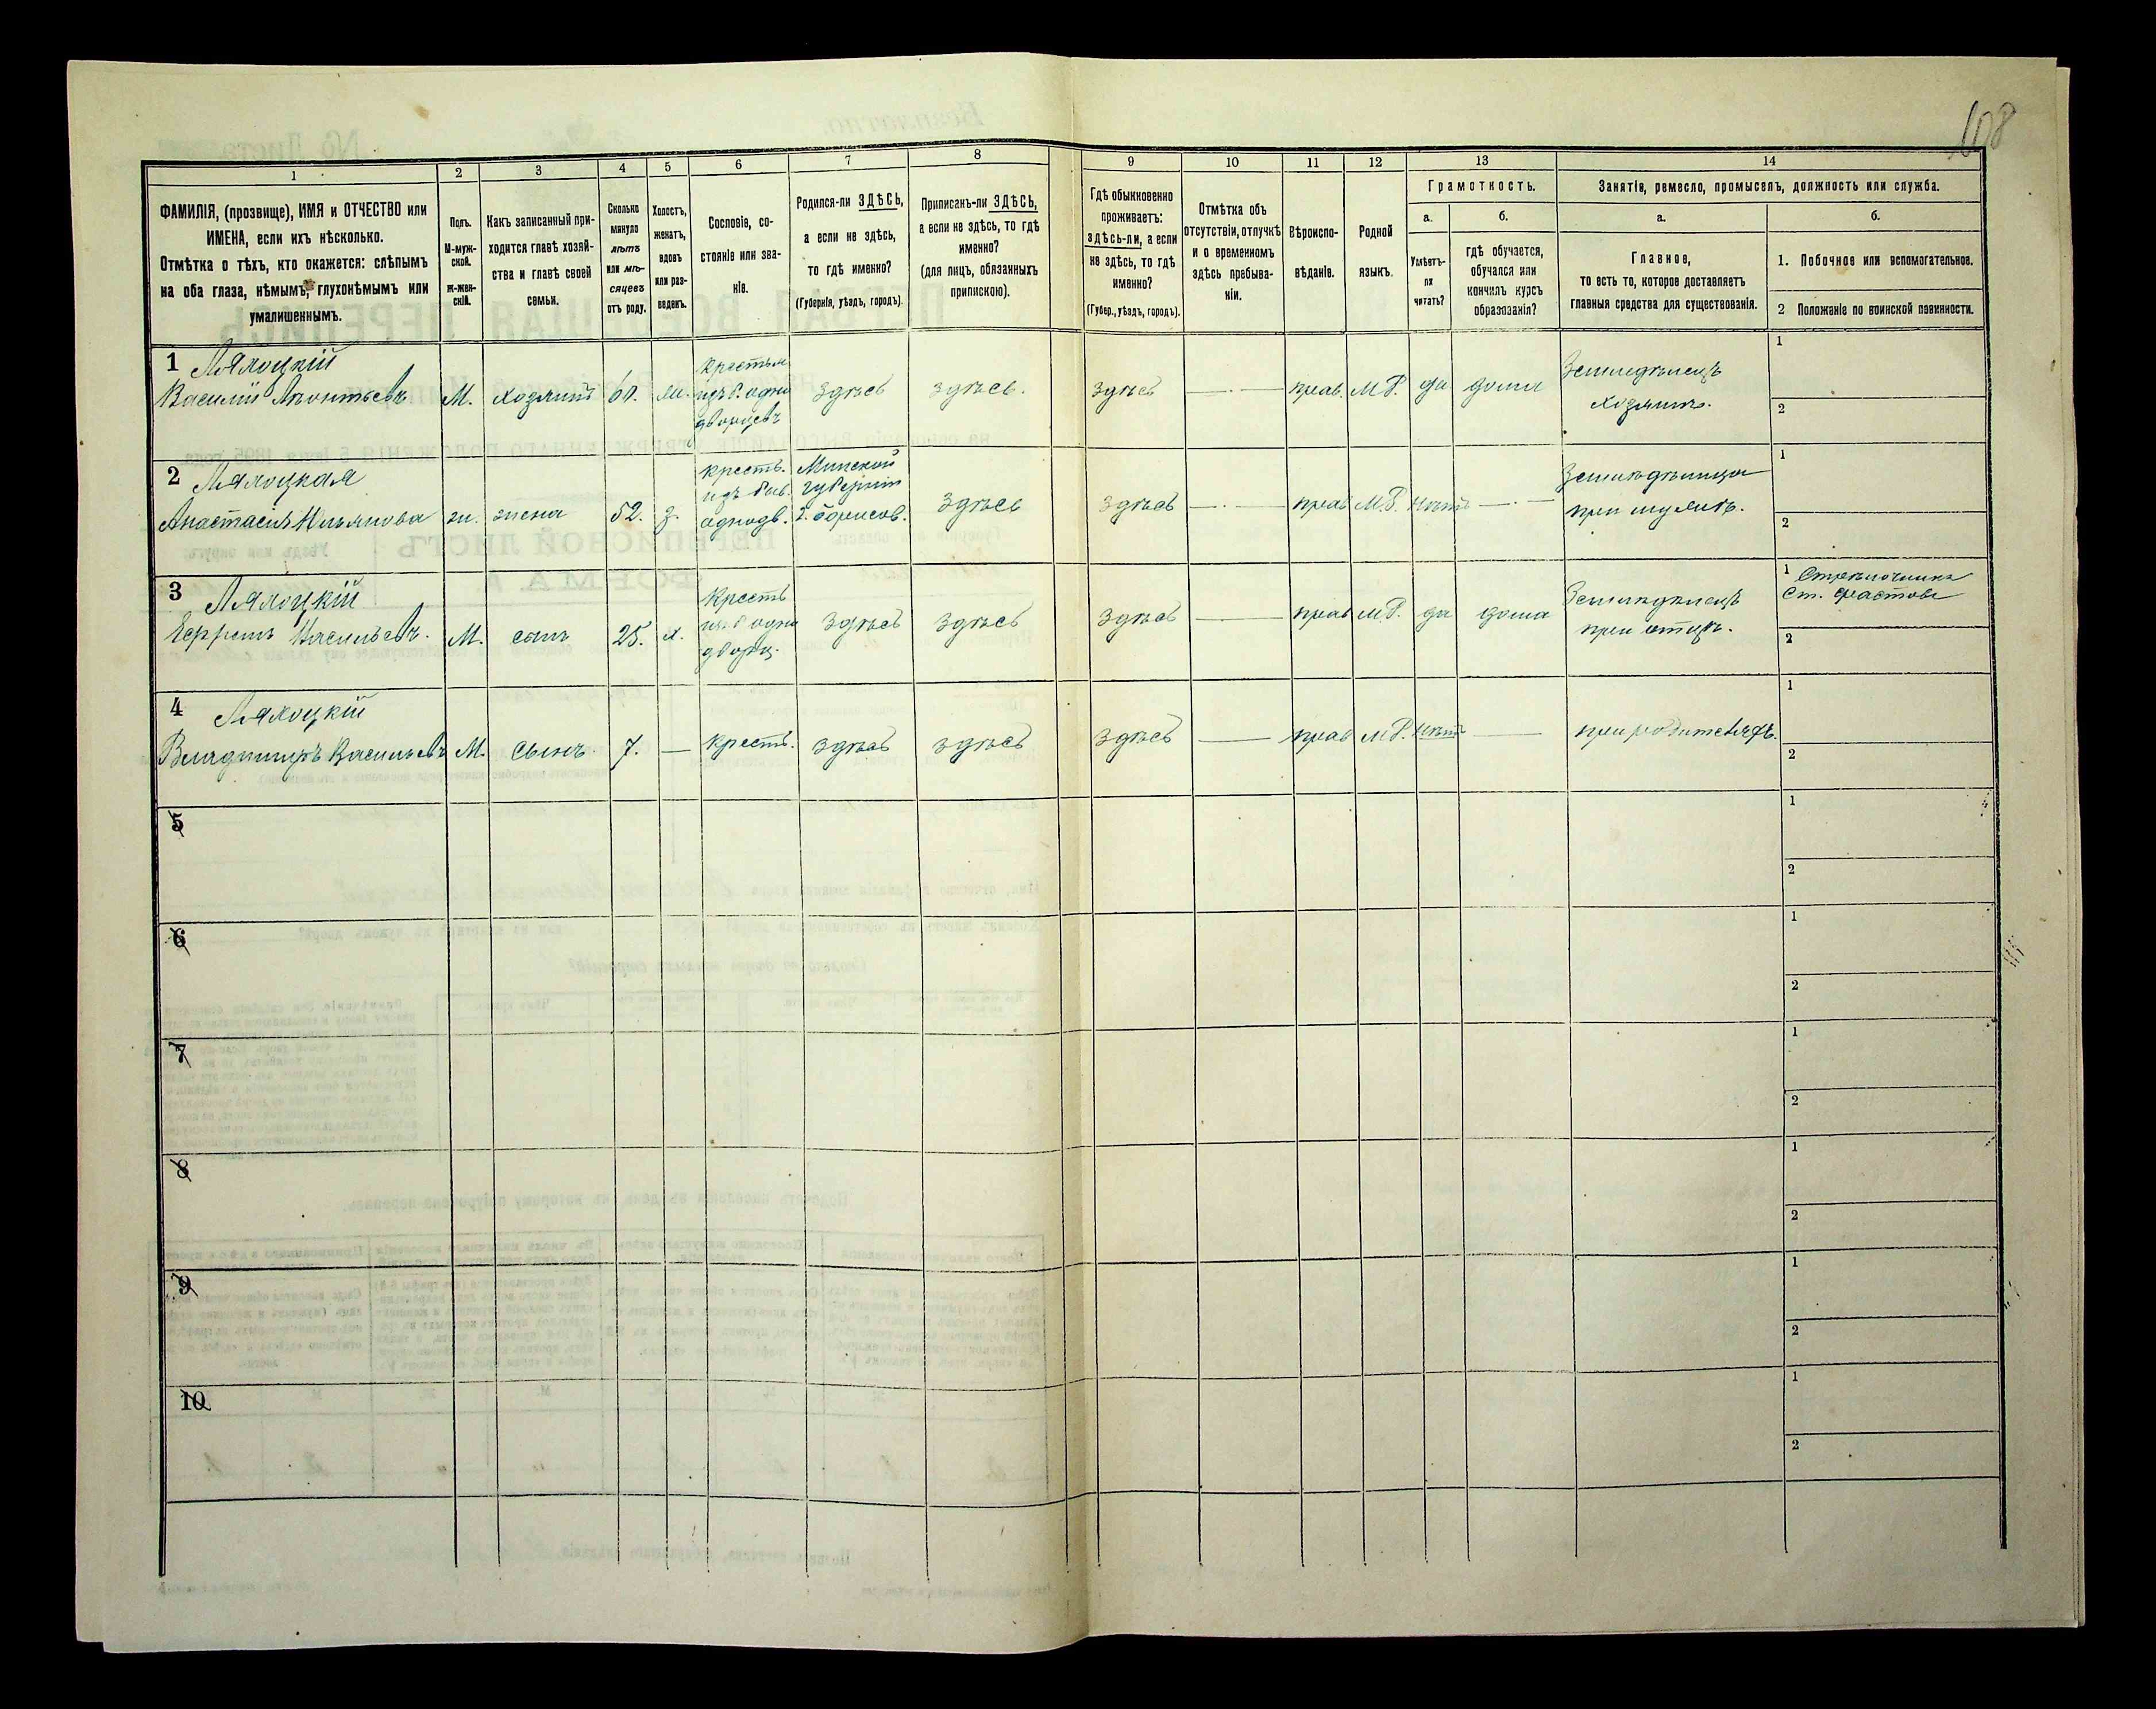 108
1 2 3 4 5 6 7 8 9 10 11 12 13 14
ФАМИЛІЯ, (прозвище), ИМЯ и ОТЧЕСТВО или
ИМЕНА, если ихъ нѣсколько.
Отмѣтка о тѣхъ, кто окажется: слѣпымъ
на оба глаза, нѣмымъ, глухонѣмымъ или
умалишеннымъ.
Полъ.
М-муж-
ской.
Ж-жен-
скій.
Какъ записанный при-
ходится главѣ хозяй-
ства и главѣ своей
семьи.
Сколько
минуло
лѣтъ
или мѣ-
сяцевъ
отъ роду.
Холостъ,
женатъ,
вдовъ
или раз-
веденъ.
Сословіе, со-
стояніе или зва-
ніе.
Родился-ли ЗДѢСЬ,
а если не здѣсь,
то гдѣ именно?
(Губернія, уѣздъ, городъ).
Приписанъ-ли ЗДѢСЬ,
а если не здѣсь, то гдѣ
именно?
(для лицъ, обязанныхъ
припискою).
Гдѣ обыкновенно
проживаетъ:
здѣсь-ли, а если
не здѣсь, то гдѣ
именно?
(Губер., уѣздъ, городъ).
Отмѣтка объ
отсутствіи, отлучкѣ
и о временномъ
здѣсь пребыва-
ніи.
Вѣроиспо-
вѣданіе.
Родной
языкъ.
Грамотность.
а.
Умѣетъ-
ли
читать?
б.
гдѣ обучается,
обучался или
кончилъ курсъ
образованія?
Занятіе, ремесло, промыселъ, должность или служба.
а.
Главное,
то есть то, которое доставляетъ
главныя средства для существованія.
б.
1. Побочное или вспомогательное.
2 Положеніе по воинской повинности.
1 Ляхоцкій
Василій Леонтьевъ
М.
хозяинъ
60.
ж.
крестьян.
изъ б. одно
дворцевъ
здѣсь
здѣсь.
здѣсь
—
прав.
М.Р.
да
дома
Земледѣлецъ
хозяинъ.
1
2
2 Ляхоцкая
Анастасія Ильянова
ж.
жена
52.
з.
крест.
изъ быв.
однодв.
Минской
губерніи
г. Борисов.
здѣсь
здѣсь
—
прав
М.Р.
нѣтъ
—
Земледѣлица
при мужѣ.
1
2
3 Ляхоцкій
Ефремъ Васильевъ.
М.
сынъ
25.
х.
крест
из. б одно
дворц.
здѣсь
здѣсь
здѣсь
—
прав
М.Р.
да
дома
Земледѣлецъ
при отцѣ.
1 Стрѣлочникъ
Ст. Фастовъ
2
4 Ляхоцкій
Владимиръ Васильевъ
М.
сынъ
7.
—
крест.
здѣсь
здѣсь
здѣсь
—
прав
М.Р.
нѣтъ
—
при родителяхъ.
1
2
5
1
2
6
1
2
7
1
2
8
1
2
9
1
2
10
1
2